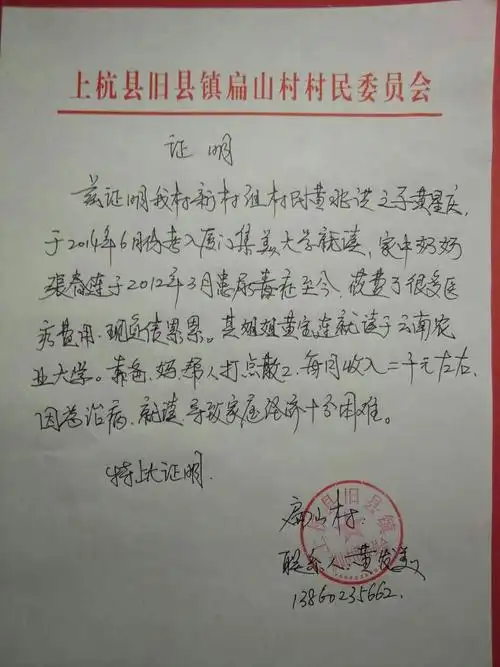 上杭县旧县镇扁山村村民委员会
证明
兹证明我村新村组村民黄 进之子黄星辰,
于2014年6月份考入厦门集美大学就读,家中奶奶
张春连于2012年3月患尿毒症至今,花费了很多医
疗费用,现负债累累。其姐姐黄定连就读于云南农
业大学。靠爸、妈帮人打点散工,每月收入二千元左右,
因为治病、就读,导致家庭经济十分困难。
特此证明.
扁山村:
联系人:黄发美
13860235662.
上杭县旧县镇